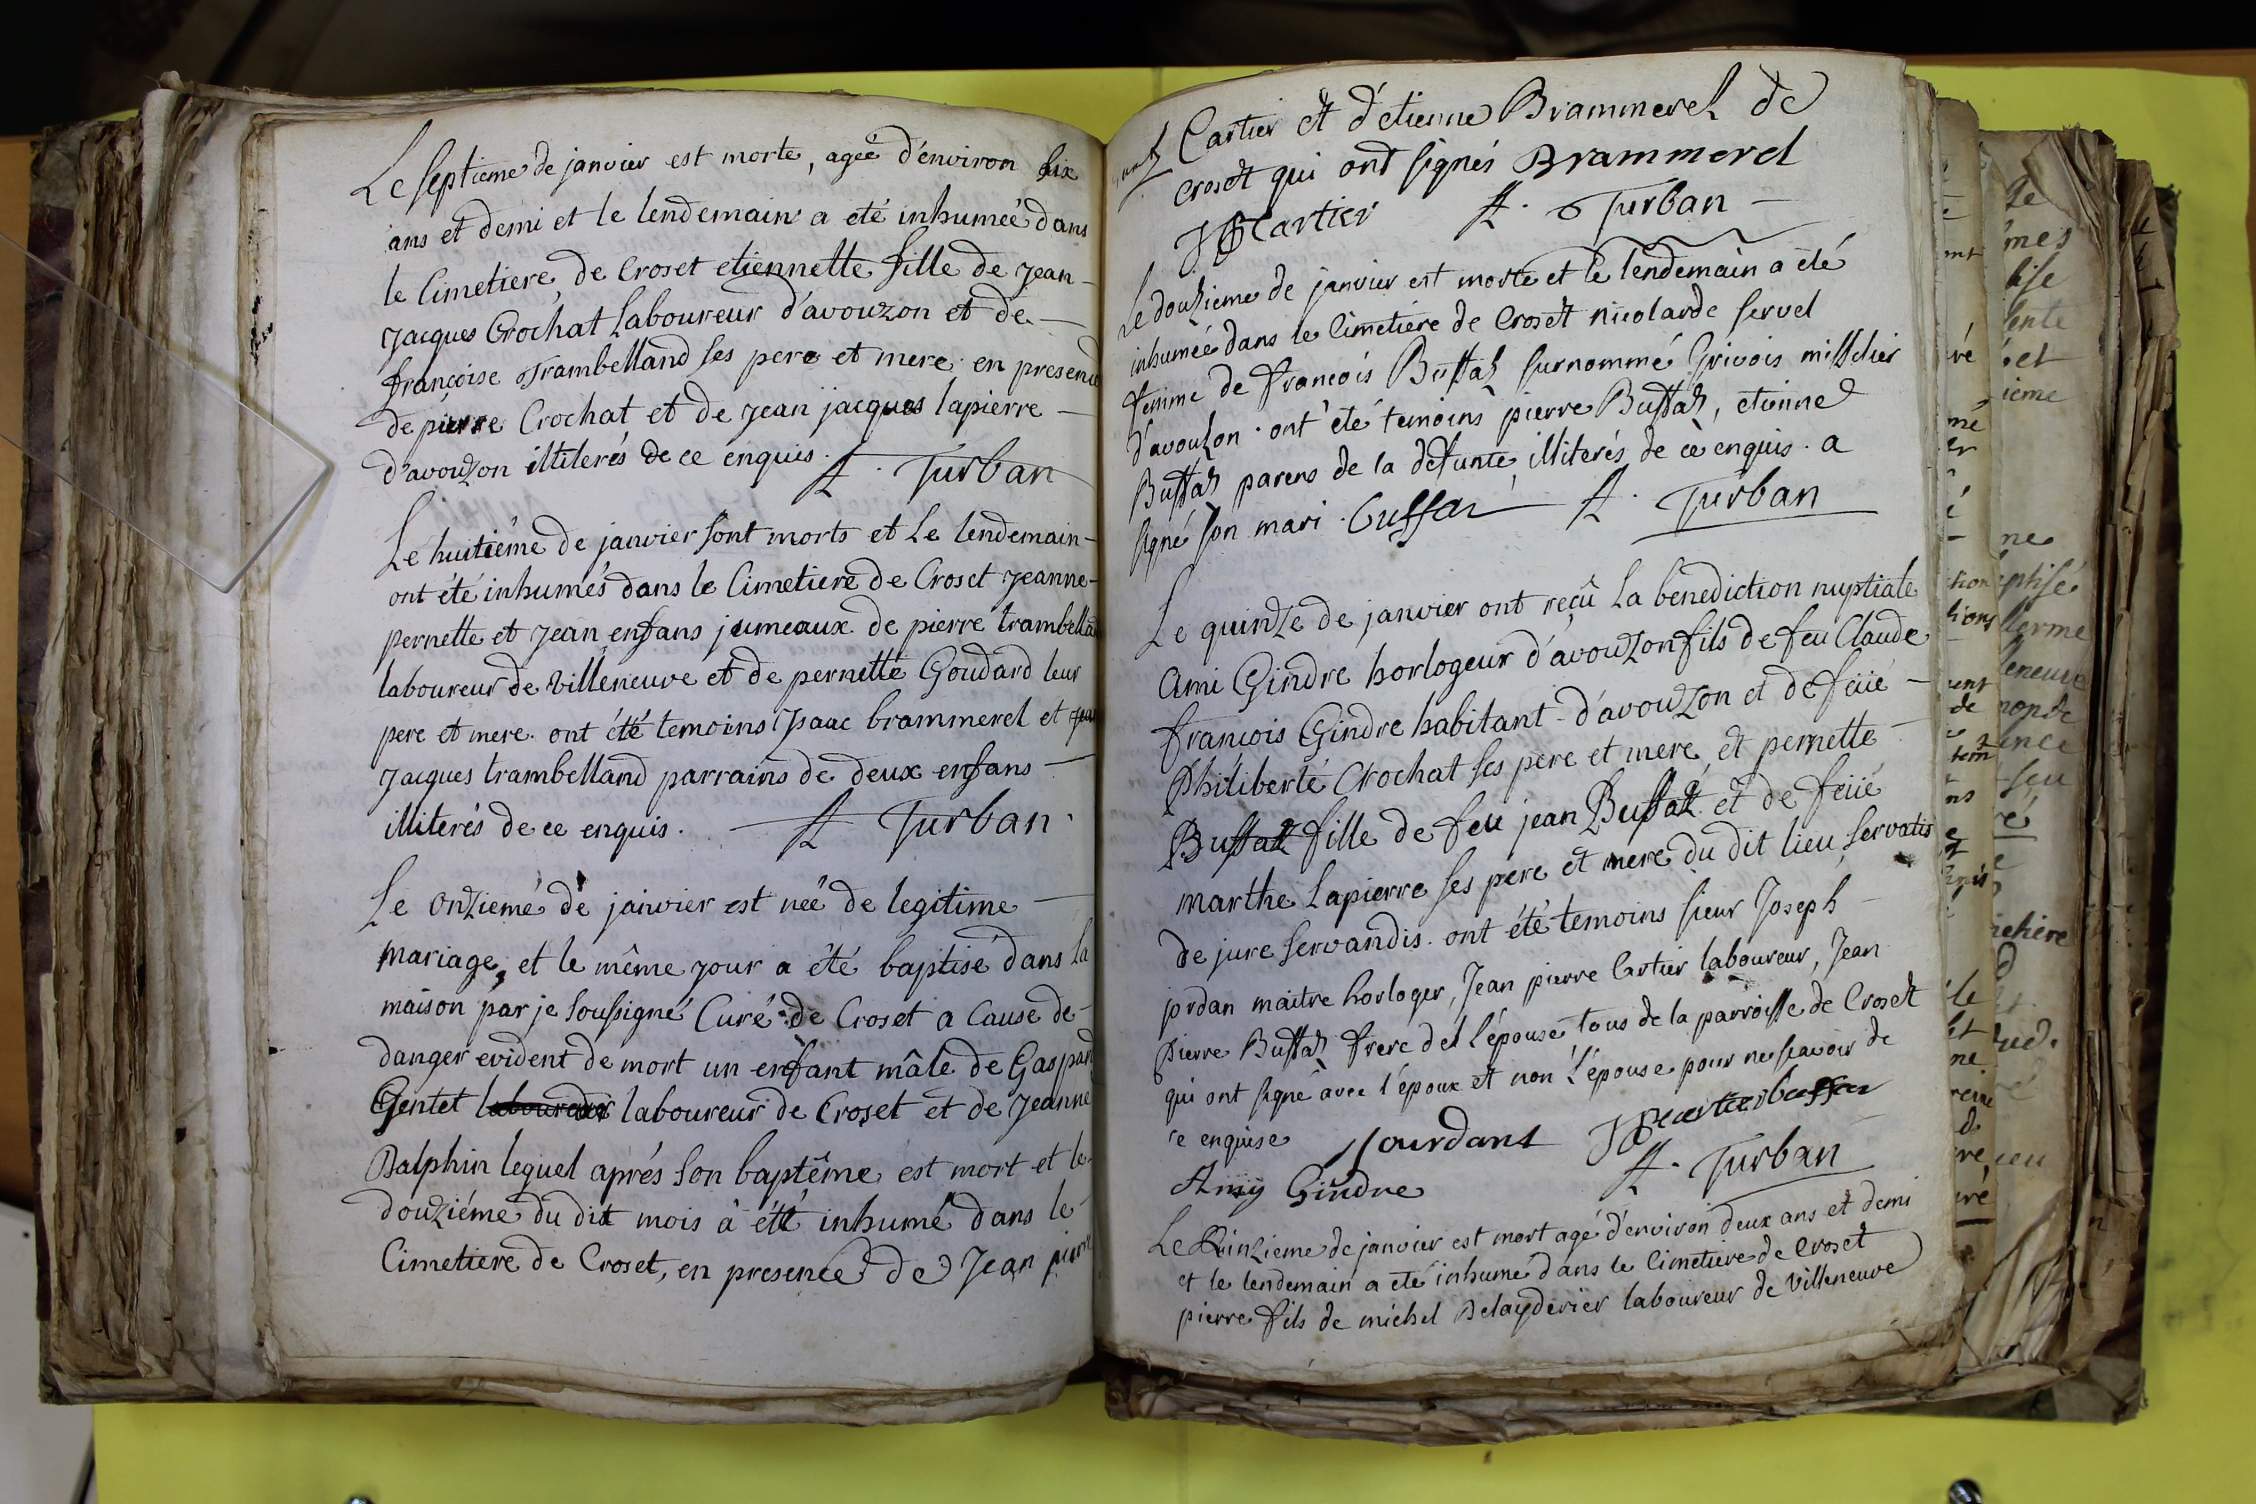 Le septieme de janvier est morte, ageé d'environ six
ans et demi et le lendemain a eté inhumeé dans
le Cimetiere de Croset etiennette fille de jean
jacques Crochat Laboureur d'avouzon et de
françoise Trambelland ses pere et mere en presence
de pierre Crochat et de jean jacques lapierre
d'avouzon illiterés de ce enquis.
Turban
Le huitiéme de janvier sont morts et Le lendemain
ont été inhumés dans le Cimetiere de Croset jeanne
pernette et jean enfans jumeaux de pierre trambelland
laboureur de villeneuve et de pernette Goudard leur
pere et mere. ont été temoins Isaac brammerel et jean
jacques trambelland parrains de deux enfans
illiterés de ce enquis.
Turban
Le onzieme de janvier est neé de legitime
mariage, et le même jour a été baptisé dans la
maison par je soussigné Curé de Croset a cause de
danger evident de mort un enfant mâle de Gaspard
Gentet laboureur laboureur de Croset et de jeanne
Dalphin lequel aprés son baptême est mort et le
douziéme du dit mois à été inhumé dans le
Cimetiere de Croset, en presence de Jean pierre
Cartier et d'etienne Brammerel de
croset qui ont signés Brammerel
JPCartier Turban
Le douzieme de janvier est morte et le lendemain a été
inhumée dans le Cimetiere de Croset nicolarde servel
femme de francois Buffaz surnommé Grivois
d'avouzon. ont été temoins pierre Buffaz, etienne
Buffaz parens de la defunte, illiterés de ce enquis. a
signé son mari. Turban
Le quinze de janvier ont reçû la benediction nuptiale
Ami Gindre horlogeur d'avouzon fils de feu Claude
francois Gindre habitant d'avouzon et de feüe
Philiberte Crochat ses pere et mere, et pernette
Buffaz fille de feu jean Buffaz et de feüe
marthe Lapierre ses pere et mere du dit lieu, servatis
de jure servandis. ont été temoins sieur Joseph
jordan maitre horloger, Jean pierre Cartier laboureur, Jean
pierre Buffaz frere de l'épouse, tous de la parroisse de Croset
qui ont signé avec l'époux et non l'épouse pour ne scavoir de
ce enquise Jourdant JPCartier buffaz
Amy Gindre Turban
Le Quinzieme de janvier est mort agé d'environ deux ans et demi
et le lendemain a eté inhumé dans le Cimetiere de Croset
pierre fils de michel Delayderier laboureur de villeneuve